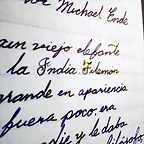 Michael Ende
un viejo elefante
la India, Filemón
grande en apariencia
fuera poco, era
y le daba